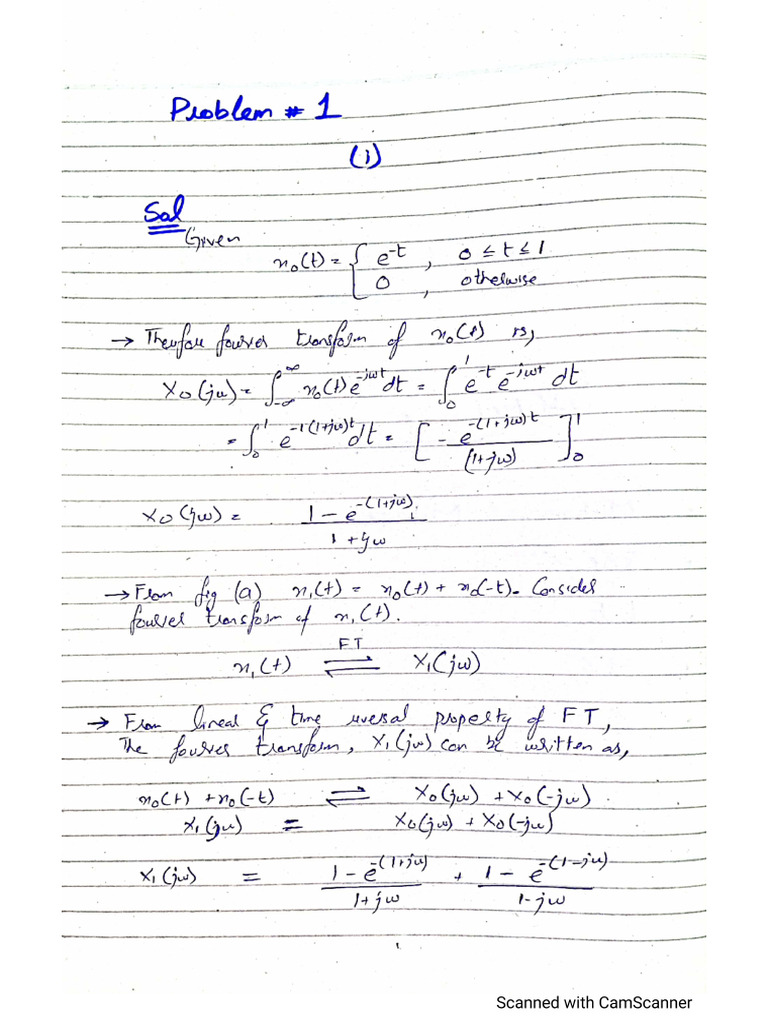 Problem # 1
(i)
Sol
Given
x₀(t) = { e^-t , 0 ≤ t ≤ 1
0 , otherwise
→ Therefore fourier transform of x₀(t) is,
X₀(jω) = ∫_-∞^∞ x₀(t) e^-jωt dt = ∫_0^1 e^-t e^-jωt dt
= ∫_0^1 e^-1(1+jω)t dt = [ - e^-(1+jω)t / (1+jω) ]_0^1
X₀(jω) = 1 - e^-(1+jω) / 1+jω
→ From fig (a) x₁(t) = x₀(t) + x₀(-t). Consider
fourier transform of x₁(t).
FT
x₁(t) ⇌ X₁(jω)
→ From linear & time reversal property of FT,
The fourier transform, X₁(jω) can be written as,
x₀(t) + x₀(-t) ⇌ X₀(jω) + X₀(-jω)
X₁(jω) = X₀(jω) + X₀(-jω)
X₁(jω) = 1 - e^-(1+jω) / 1+jω + 1 - e^-(1-jω) / 1-jω
Scanned with CamScanner